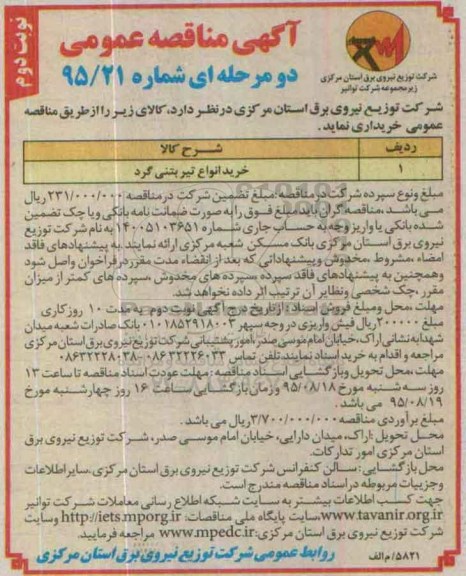 نوبت دوم
آگهی مناقصه عمومی
دو مرحله ای شماره ۹۵/۲۱
شرکت توزیع نیروی برق استان مرکزی
زیرمجموعه شرکت توانیر
شرکت توزیع نیروی برق استان مرکزی در نظر دارد، کالای زیر را از طریق مناقصه
عمومی خریداری نماید.
ردیف شرح کالا
۱ خرید انواع تیر بتنی گرد
مبلغ و نوع سپرده شرکت در مناقصه: مبلغ تضمین شرکت در مناقصه ۲۳۱/۰۰۰/۰۰۰ ریال
می باشد. مناقصه گران باید مبلغ فوق را به صورت ضمانت نامه بانکی و یا چک تضمین
شده بانکی یا واریز وجه به حساب جاری شماره ۱۴۰۰۵۱۰۳۶۵۱ به نام شرکت توزیع
نیروی برق استان مرکزی بانک مسکن شعبه مرکزی ارائه نمایند. به پیشنهادهای فاقد
امضاء ، مشروط ، مخدوش و پیشنهاداتی که بعد از انقضاء مدت مقرر در فراخوان واصل شود
و همچنین به پیشنهادهای فاقد سپرده ،سپرده های مخدوش ،سپرده های کمتر از میزان
مقرر ،چک شخصی و نظایر آن ترتیب اثر داده نخواهد شد.
مهلت ،محل و مبلغ فروش اسناد: از تاریخ درج آگهی نوبت دوم به مدت ۱۰ روز کاری
مبلغ ۲۰۰۰۰۰ ریال فیش واریزی در وجه سپهر ۰۱۰۱۸۵۲۹۱۸۰۰۳ بانک صادرات شعبه میدان
شهدا به نشانی اراک، خیابان امام موسی صدر، امور پشتیبانی شرکت توزیع نیروی برق استان مرکزی
مراجعه و اقدام به خرید اسناد نمایند. تلفن تماس ۰۸۶۳۲۲۲۶۰۳۳-۰۸۶۳۲۲۲۸۰۳۸
مهلت ،محل تحویل و بازگشایی اسناد مناقصه : مهلت عودت اسناد مناقصه تا ساعت ۱۳
روز سه شنبه مورخ ۹۵/۰۸/۱۸ و زمان بازگشایی ساعت ۱۶ روز چهارشنبه مورخ
۹۵/۰۸/۱۹ می باشد.
مبلغ برآوردی مناقصه ۳/۷۰۰/۰۰۰/۰۰۰ ریال می باشد.
محل تحویل :اراک، میدان دارایی، خیابان امام موسی صدر، شرکت توزیع نیروی برق
استان مرکزی امور تدارکات.
محل بازگشایی : سالن کنفرانس شرکت توزیع نیروی برق استان مرکزی .سایر اطلاعات
و جزییات مربوطه در اسناد مناقصه مندرج است.
جهت کسب اطلاعات بیشتر به سایت شبکه اطلاع رسانی معاملات شرکت توانیر
www.tavanir.org.ir،سایت پایگاه ملی مناقصات: http://iets.mporg.ir وسایت
شرکت توزیع نیروی برق استان مرکزی:www.mpedc.ir مراجعه فرمایید.
۵۸۲۱/م الف روابط عمومی شرکت توزیع نیروی برق استان مرکزی